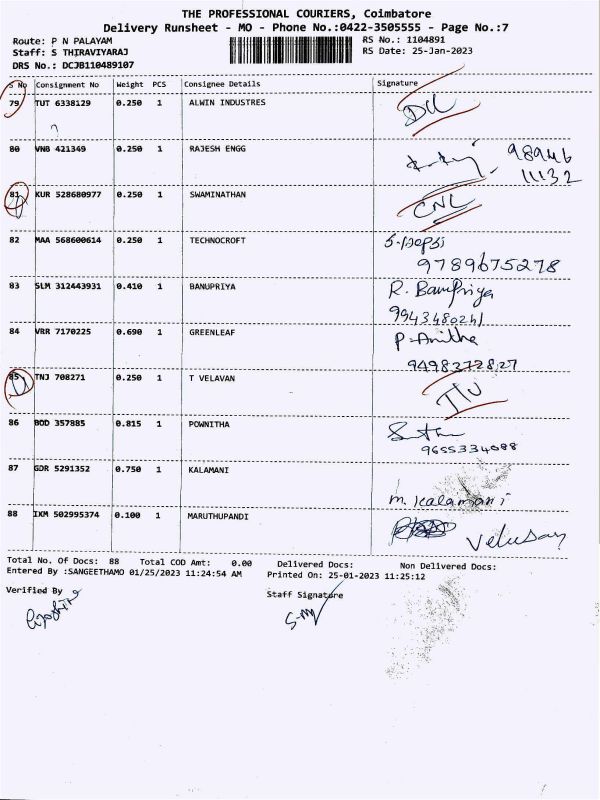 THE PROFESSIONAL COURIERS, Coimbatore
Delivery Runsheet - MO - Phone No.:0422-3505555 - Page No.:7
Route: P N PALAYAM
RS No.: 1104891
Staff: S THIRAVIYARAJ
RS Date: 25-Jan-2023
DRS No.: DCJB110489107
S No Consignment No Weight PCS Consignee Details Signature
79 TUT 6338129 0.250 1 ALWIN INDUSTRES
80 VNB 421349 0.250 1 RAJESH ENGG 98946
11132
81 KUR 528680977 0.250 1 SWAMINATHAN CNL
82 MAA 568600614 0.250 1 TECHNOCROFT
9789675278
83 SLM 312443931 0.410 1 BANUPRIYA R. Banupriya
9943480241
84 VRR 7170225 0.690 1 GREENLEAF P. Anitha
9498372827
85 TNJ 708271 0.250 1 T VELAVAN
86 BOD 357885 0.815 1 POWNITHA
9655334088
87 GDR 5291352 0.750 1 KALAMANI
m. kalamani
88 IXM 502995374 0.100 1 MARUTHUPANDI
Velusay
Total No. Of Docs: 88 Total COD Amt: 0.00 Delivered Docs: Non Delivered Docs:
Entered By :SANGEETHAMO 01/25/2023 11:24:54 AM Printed On: 25-01-2023 11:25:12
Verified By Staff Signature